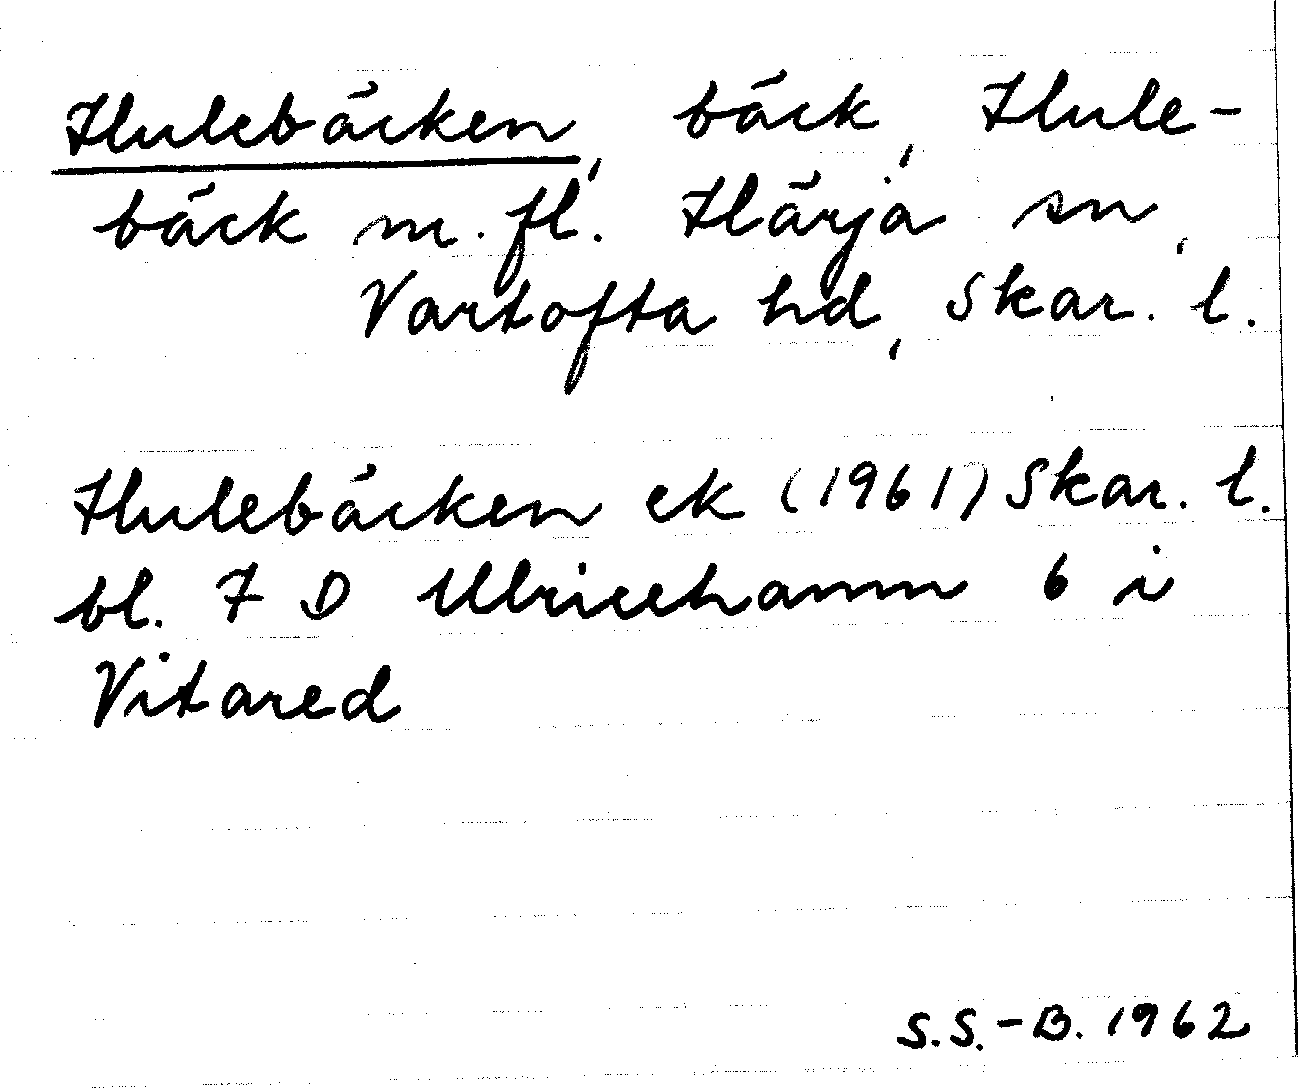 Hulebäcken, bäck, Hule-
bäck m. fl. Härja sn,
Vartofta hd, Skar. l.
Hulebäcken ek (1961) Skar. l.
bl. 7 D Ulricehamn 6 i
Vitared
S.S.-B. 1962